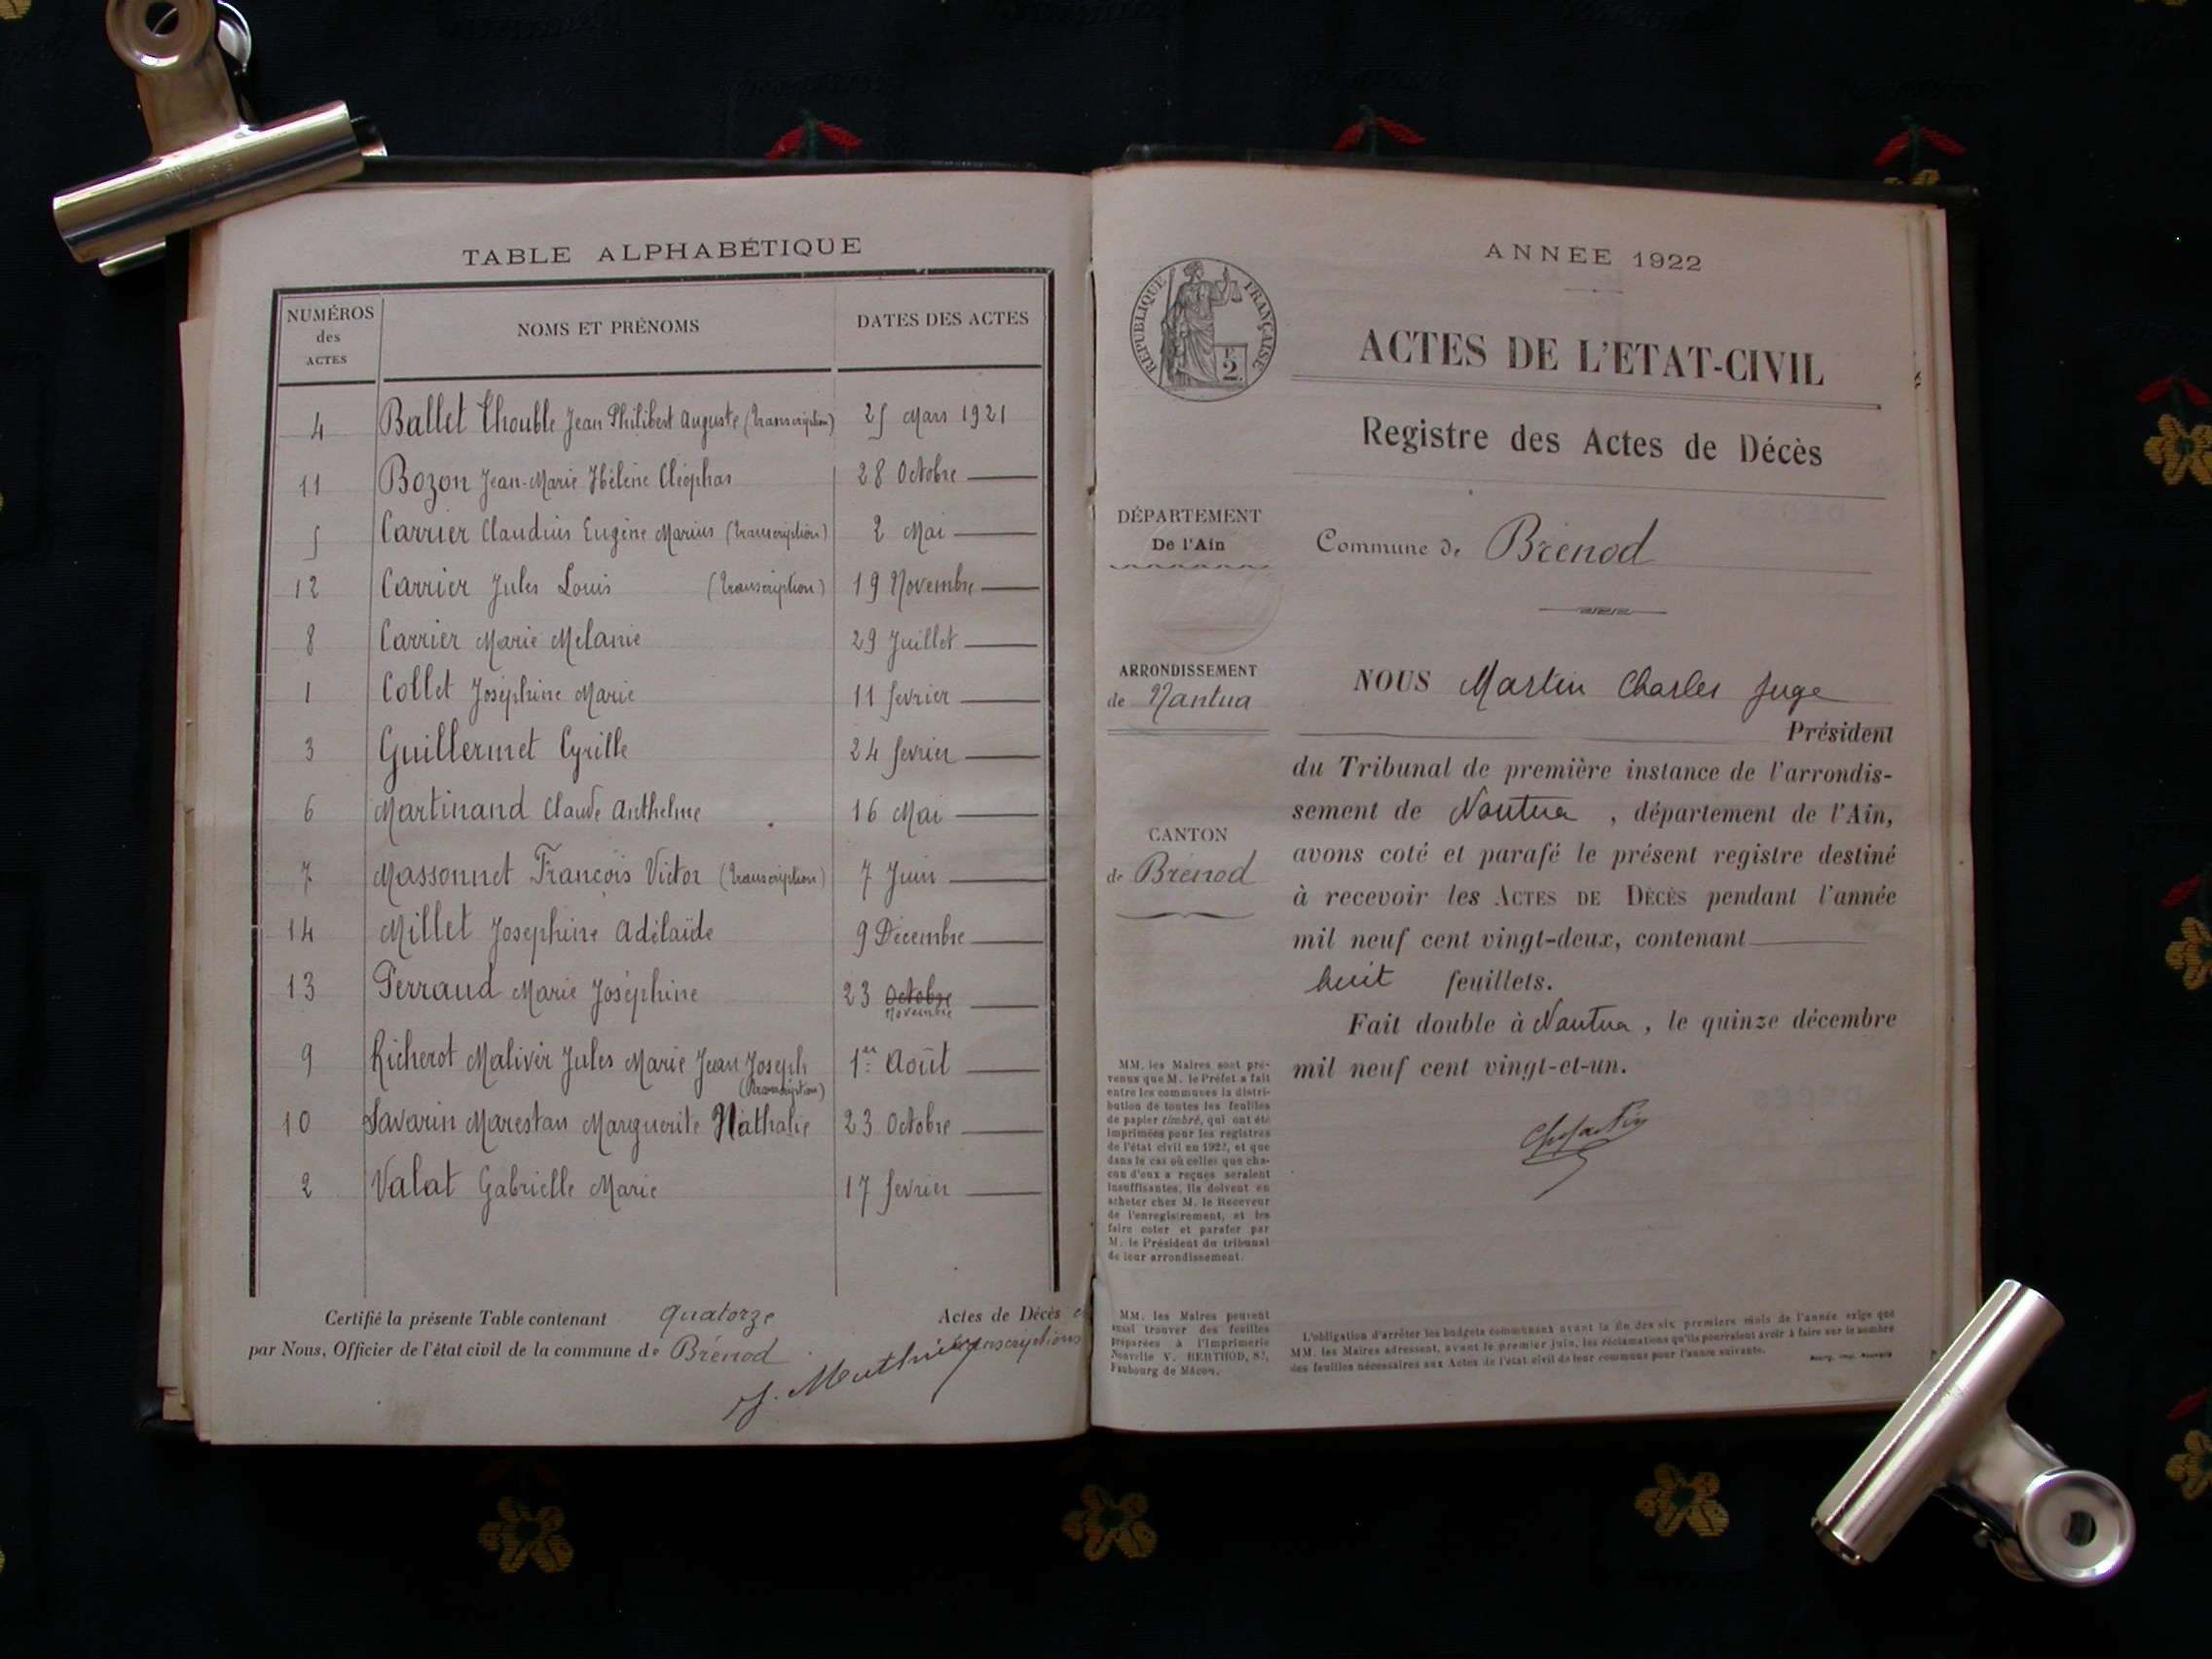 TABLE ALPHABÉTIQUE
NUMÉROS des ACTES NOMS ET PRÉNOMS DATES DES ACTES
4 Ballet Thouble Jean Philibert Auguste (transcription) 25 Mars 1921
11 Bozon Jean-Marie Hélène Cléophas 28 Octobre
5 Carrier Claudius Eugène Marius (transcription) 2 Mai
12 Carrier Jules Louis (transcription) 19 Novembre
8 Carrier Marie Mélanie 29 Juillet
1 Collet Joséphine Marie 11 fevrier
3 Guillermet Cyrille 24 fevrier
6 Martinand Claude Anthelme 16 Mai
7 Massonnet François Victor (transcription) 7 Juin
14 Millet Josephine Adélaïde 9 Décembre
13 Perraud Marie Joséphine 23 Octobre Novembre
9 Richerot Malivir Jules Marie Jean Joseph 1er Août
(transcription)
10 Savarin Marestan Marguerite Nathalie 23 Octobre
2 Valat Gabrielle Marie 17 fevrier
Certifié la présente Table contenant quatorze Actes de Décès
par Nous, Officier de l'état civil de la commune de Brénod transcriptions
ANNEE 1922
RÉPUBLIQUE FRANÇAISE
2
ACTES DE L'ETAT-CIVIL
Registre des Actes de Décès
DÉPARTEMENT
De l'Ain
Commune de Brénod
ARRONDISSEMENT
de Nantua
CANTON
de Brénod
NOUS Martin Charles Juge
Président
du Tribunal de première instance de l'arrondis-
sement de Nantua, département de l'Ain,
avons coté et parafé le présent registre destiné
à recevoir les ACTES DE DÉCÈS pendant l'année
mil neuf cent vingt-deux, contenant
huit feuillets.
Fait double à Nantua, le quinze décembre
mil neuf cent vingt-et-un.
MM. les Maires sont pré-
venus que M. le Préfet a fait
entre les communes la distri-
bution de toutes les feuilles
de papier timbré, qui ont été
imprimées pour les registres
de l'état civil en 1922, et que
dans le cas où celles que cha-
cun d'eux a reçues seraient
insuffisantes, ils doivent en
acheter chez M. le Receveur
de l'enregistrement, et les
faire coter et parafer par
M. le Président du tribunal
de leur arrondissement.
MM. les Maires peuvent
aussi trouver des feuilles
préparées à l'Imprimerie
Nouvelle V. BERTHOD, 82,
Faubourg de Mâcon.
L'obligation d'arrêter les budgets communaux avant la fin des six premiers mois de l'année exige que
MM. les Maires adressent, avant le premier juin, les réclamations qu'ils pourraient avoir à faire sur le nombre
des feuilles nécessaires aux Actes de l'état civil de leur commune pour l'année suivante.
Bourg, imp. Nouvelle